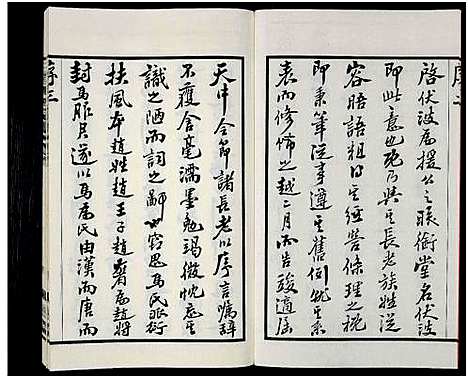 啓伏波房援公之聯銜堂名伏波
即此意也既乃與其長老族姓從
容晤語粗日其經營條理之槪
即秉筆從事遵其舊例就其系
表而修飾之越二月而告竣適届
天中令節諸長老以序言囑辭
不獲含毫濡墨勉竭微忱忘其
識之陋而詞之鄙竊思馬氏派衍
扶風本趙姓趙王子趙奢為趙將
封馬服君遂以馬為氏由漢而唐而
序三